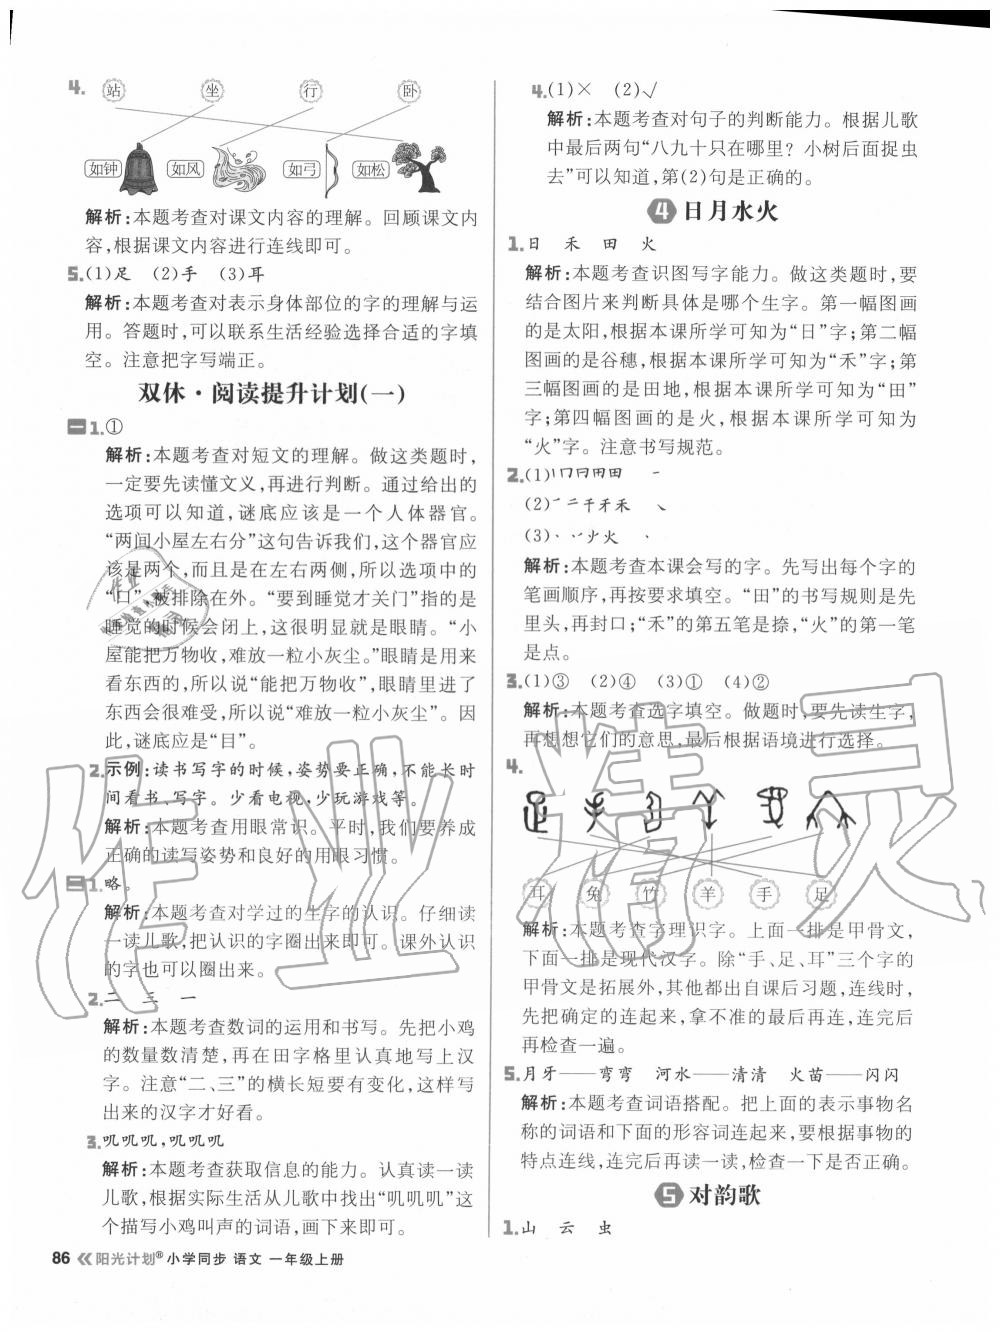 4. 站 坐 行 卧
如钟 如风 如弓 如松
解析:本题考查对课文内容的理解。回顾课文内
容,根据课文内容进行连线即可。
5.(1)足 (2)手 (3)耳
解析:本题考查对表示身体部位的字的理解与运
用。答题时,可以联系生活经验选择合适的字填
空。注意把字写端正。
双休·阅读提升计划(一)
一 1.①
解析:本题考查对短文的理解。做这类题时,
一定要先读懂文义,再进行判断。通过给出的
选项可以知道,谜底应该是一个人体器官。
“两间小屋左右分”这句告诉我们,这个器官应
该是两个,而且是在左右两侧,所以选项中的
“口”被排除在外。“要到睡觉才关门”指的是
睡觉的时候会闭上,这很明显就是眼睛。“小
屋能把万物收,难放一粒小灰尘。”眼睛是用来
看东西的,所以说“能把万物收”,眼睛里进了
东西会很难受,所以说“难放一粒小灰尘”。因
此,谜底应是“目”。
2.示例:读书写字的时候,姿势要正确,不能长时
间看书、写字。少看电视,少玩游戏等。
解析:本题考查用眼常识。平时,我们要养成
正确的读写姿势和良好的用眼习惯。
二 1.略。
解析:本题考查对学过的生字的认识。仔细读
一读儿歌,把认识的字圈出来即可。课外认识
的字也可以圈出来。
2.二 三 一
解析:本题考查数词的运用和书写。先把小鸡
的数量数清楚,再在田字格里认真地写上汉
字。注意“二、三”的横长短要有变化,这样写
出来的汉字才好看。
3.叽叽叽,叽叽叽
解析:本题考查获取信息的能力。认真读一读
儿歌,根据实际生活从儿歌中找出“叽叽叽”这
个描写小鸡叫声的词语,画下来即可。
86 阳光计划® 小学同步 语文 一年级上册
4.(1)× (2)√
解析:本题考查对句子的判断能力。根据儿歌
中最后两句“八九十只在哪里?小树后面捉虫
去”可以知道,第(2)句是正确的。
4 日月水火
1.日 禾 田 火
解析:本题考查识图写字能力。做这类题时,要
结合图片来判断具体是哪个生字。第一幅图画
的是太阳,根据本课所学可知为“日”字;第二幅
图画的是谷穗,根据本课所学可知为“禾”字;第
三幅图画的是田地,根据本课所学可知为“田”
字;第四幅图画的是火,根据本课所学可知为
“火”字。注意书写规范。
2.(1)丨冂冃田田 一
(2)一二千才禾 ㇏
(3)丶丷少火 丶
解析:本题考查本课会写的字。先写出每个字的
笔画顺序,再按要求填空。“田”的书写规则是先
里头,再封口;“禾”的第五笔是捺,“火”的第一笔
是点。
3.(1)③ (2)④ (3)① (4)②
解析:本题考查选字填空。做题时,要先读生字,
再想想它们的意思,最后根据语境进行选择。
4.
耳 兔 竹 羊 手 足
解析:本题考查字理识字。上面一排是甲骨文,
下面一排是现代汉字。除“手、足、耳”三个字的
甲骨文是拓展外,其他都出自课后习题,连线时,
先把确定的连起来,拿不准的最后再连,连完后
再检查一遍。
5.月牙——弯弯 河水——清清 火苗——闪闪
解析:本题考查词语搭配。把上面的表示事物名
称的词语和下面的形容词连起来,要根据事物的
特点连线,连完后再读一读,检查一下是否正确。
5 对韵歌
1.山 云 虫
作业精灵